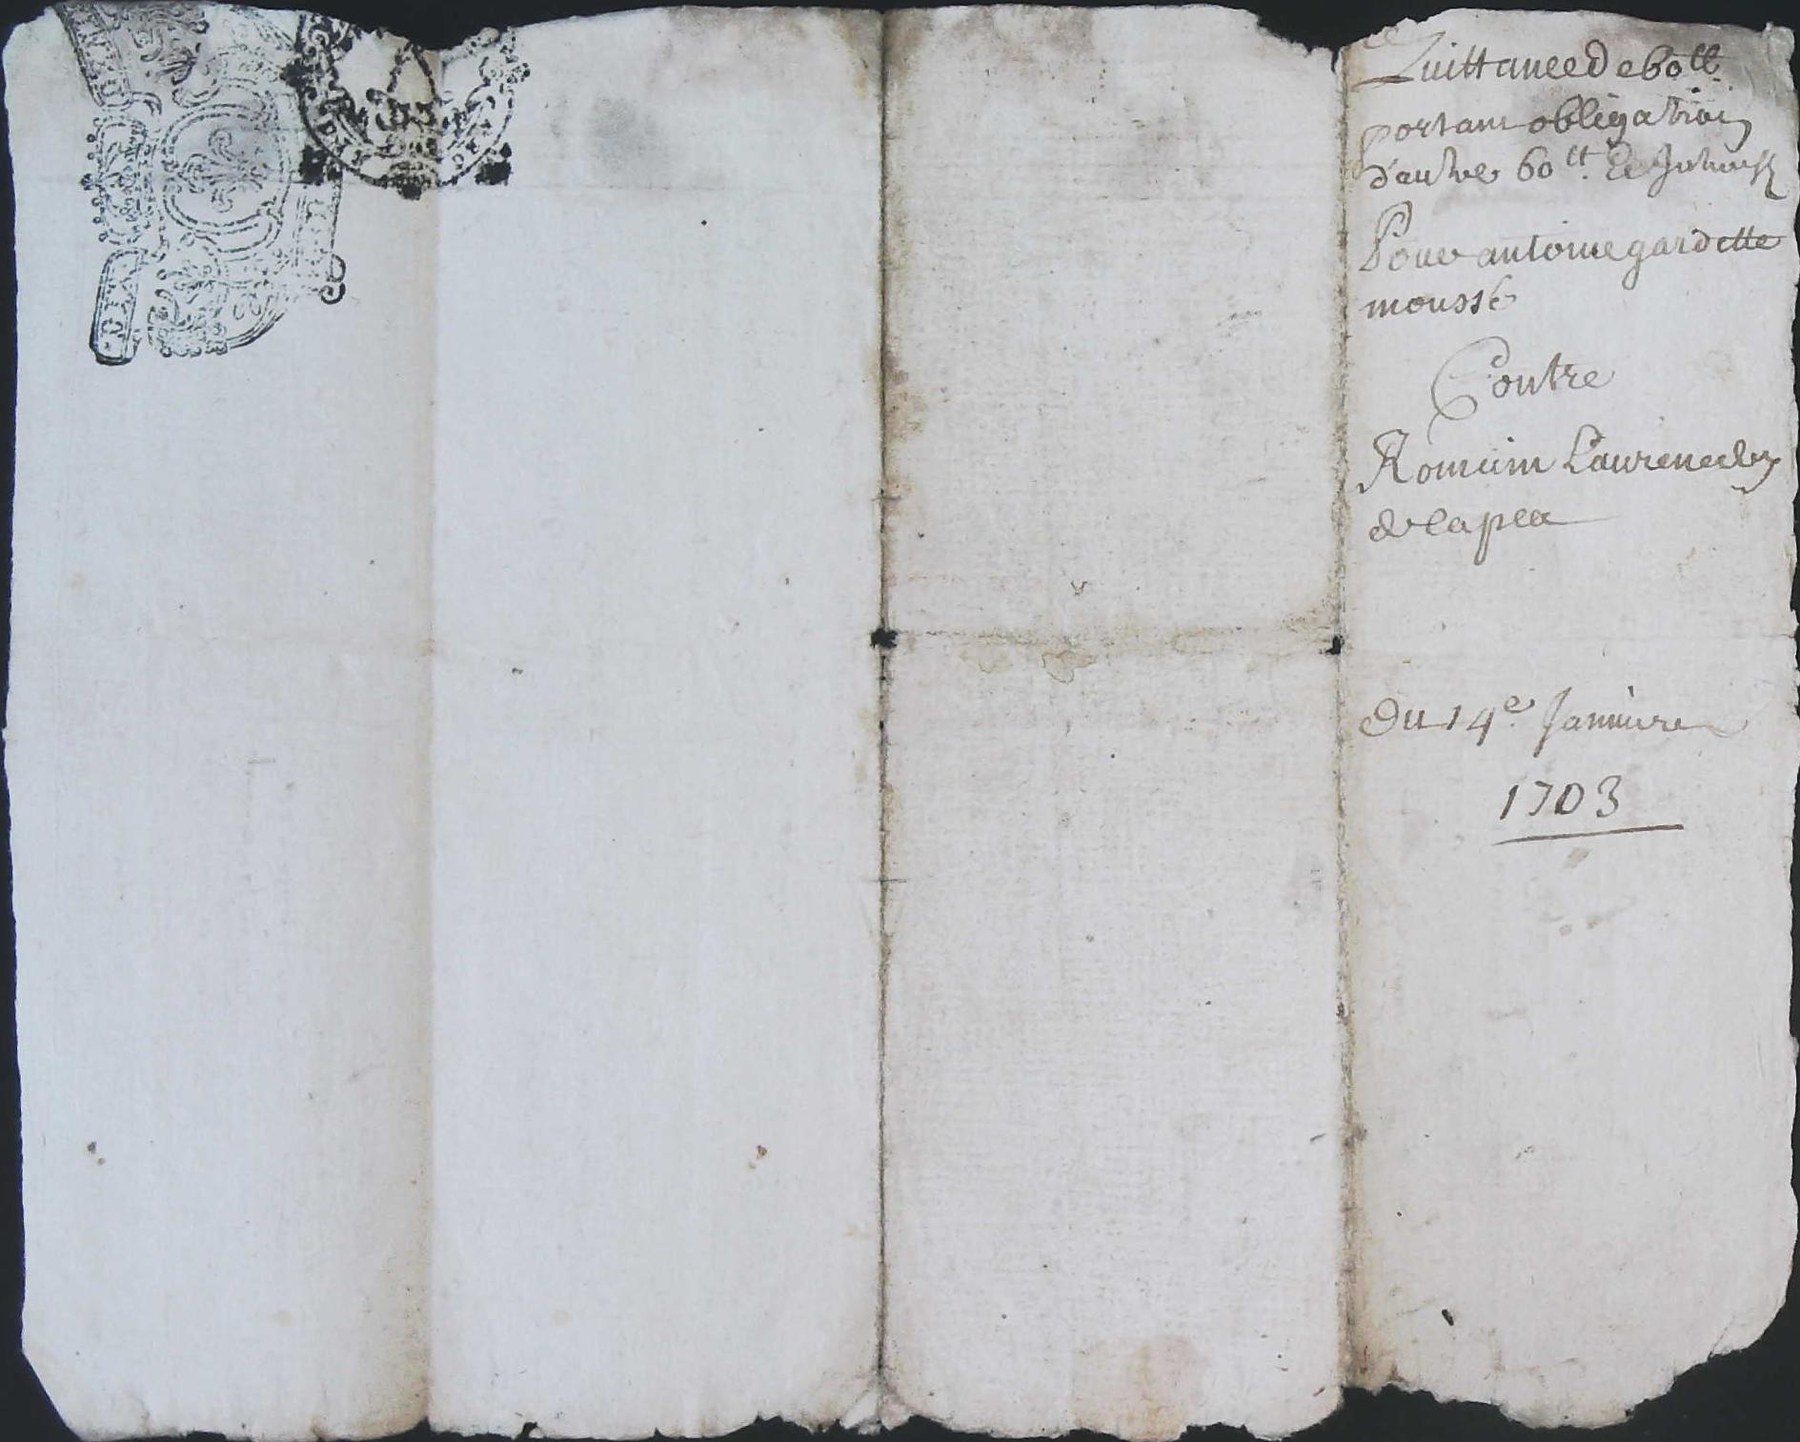 Quittance de 60 tt
portant obligation
d'autre 60 tt. de
Pour antoine gardette
mousse
Contre
Romain Laurenceln
de la plea
Du 14e Januire
1703